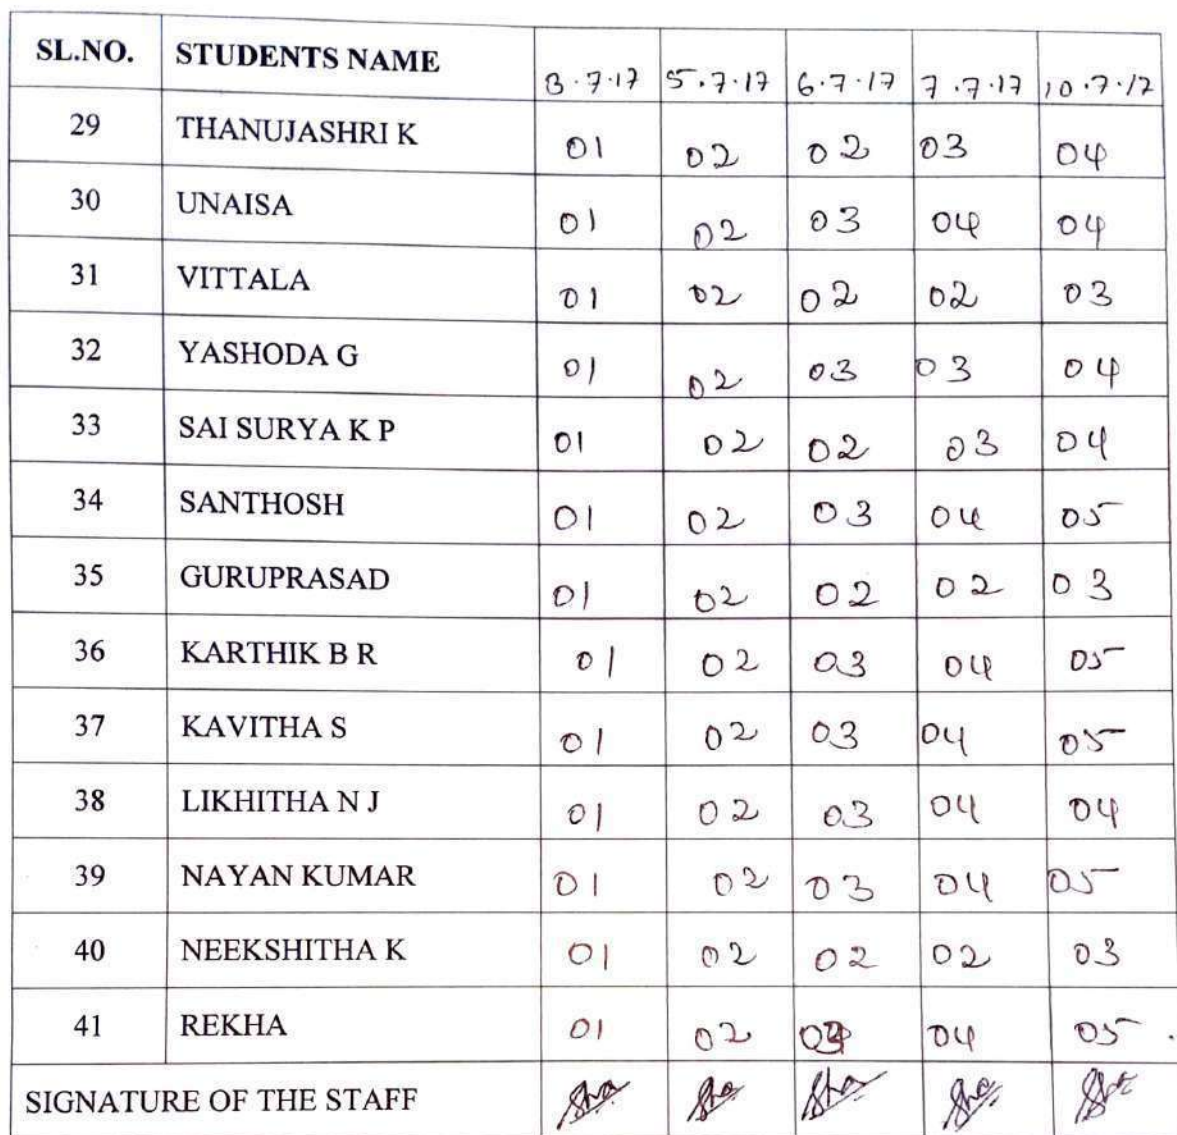 SL.NO. STUDENTS NAME 3.7.17 5.7.17 6.7.17 7.7.17 10.7.17
29 THANUJASHRI K 01 02 02 03 04
30 UNAISA 01 02 03 04 04
31 VITTALA 01 02 02 02 03
32 YASHODA G 01 02 03 03 04
33 SAI SURYA K P 01 02 02 03 04
34 SANTHOSH 01 02 03 04 05
35 GURUPRASAD 01 02 02 02 03
36 KARTHIK B R 01 02 03 04 05
37 KAVITHA S 01 02 03 04 05
38 LIKHITHA N J 01 02 03 04 04
39 NAYAN KUMAR 01 02 03 04 05
40 NEEKSHITHA K 01 02 02 02 03
41 REKHA 01 02 04 05
SIGNATURE OF THE STAFF